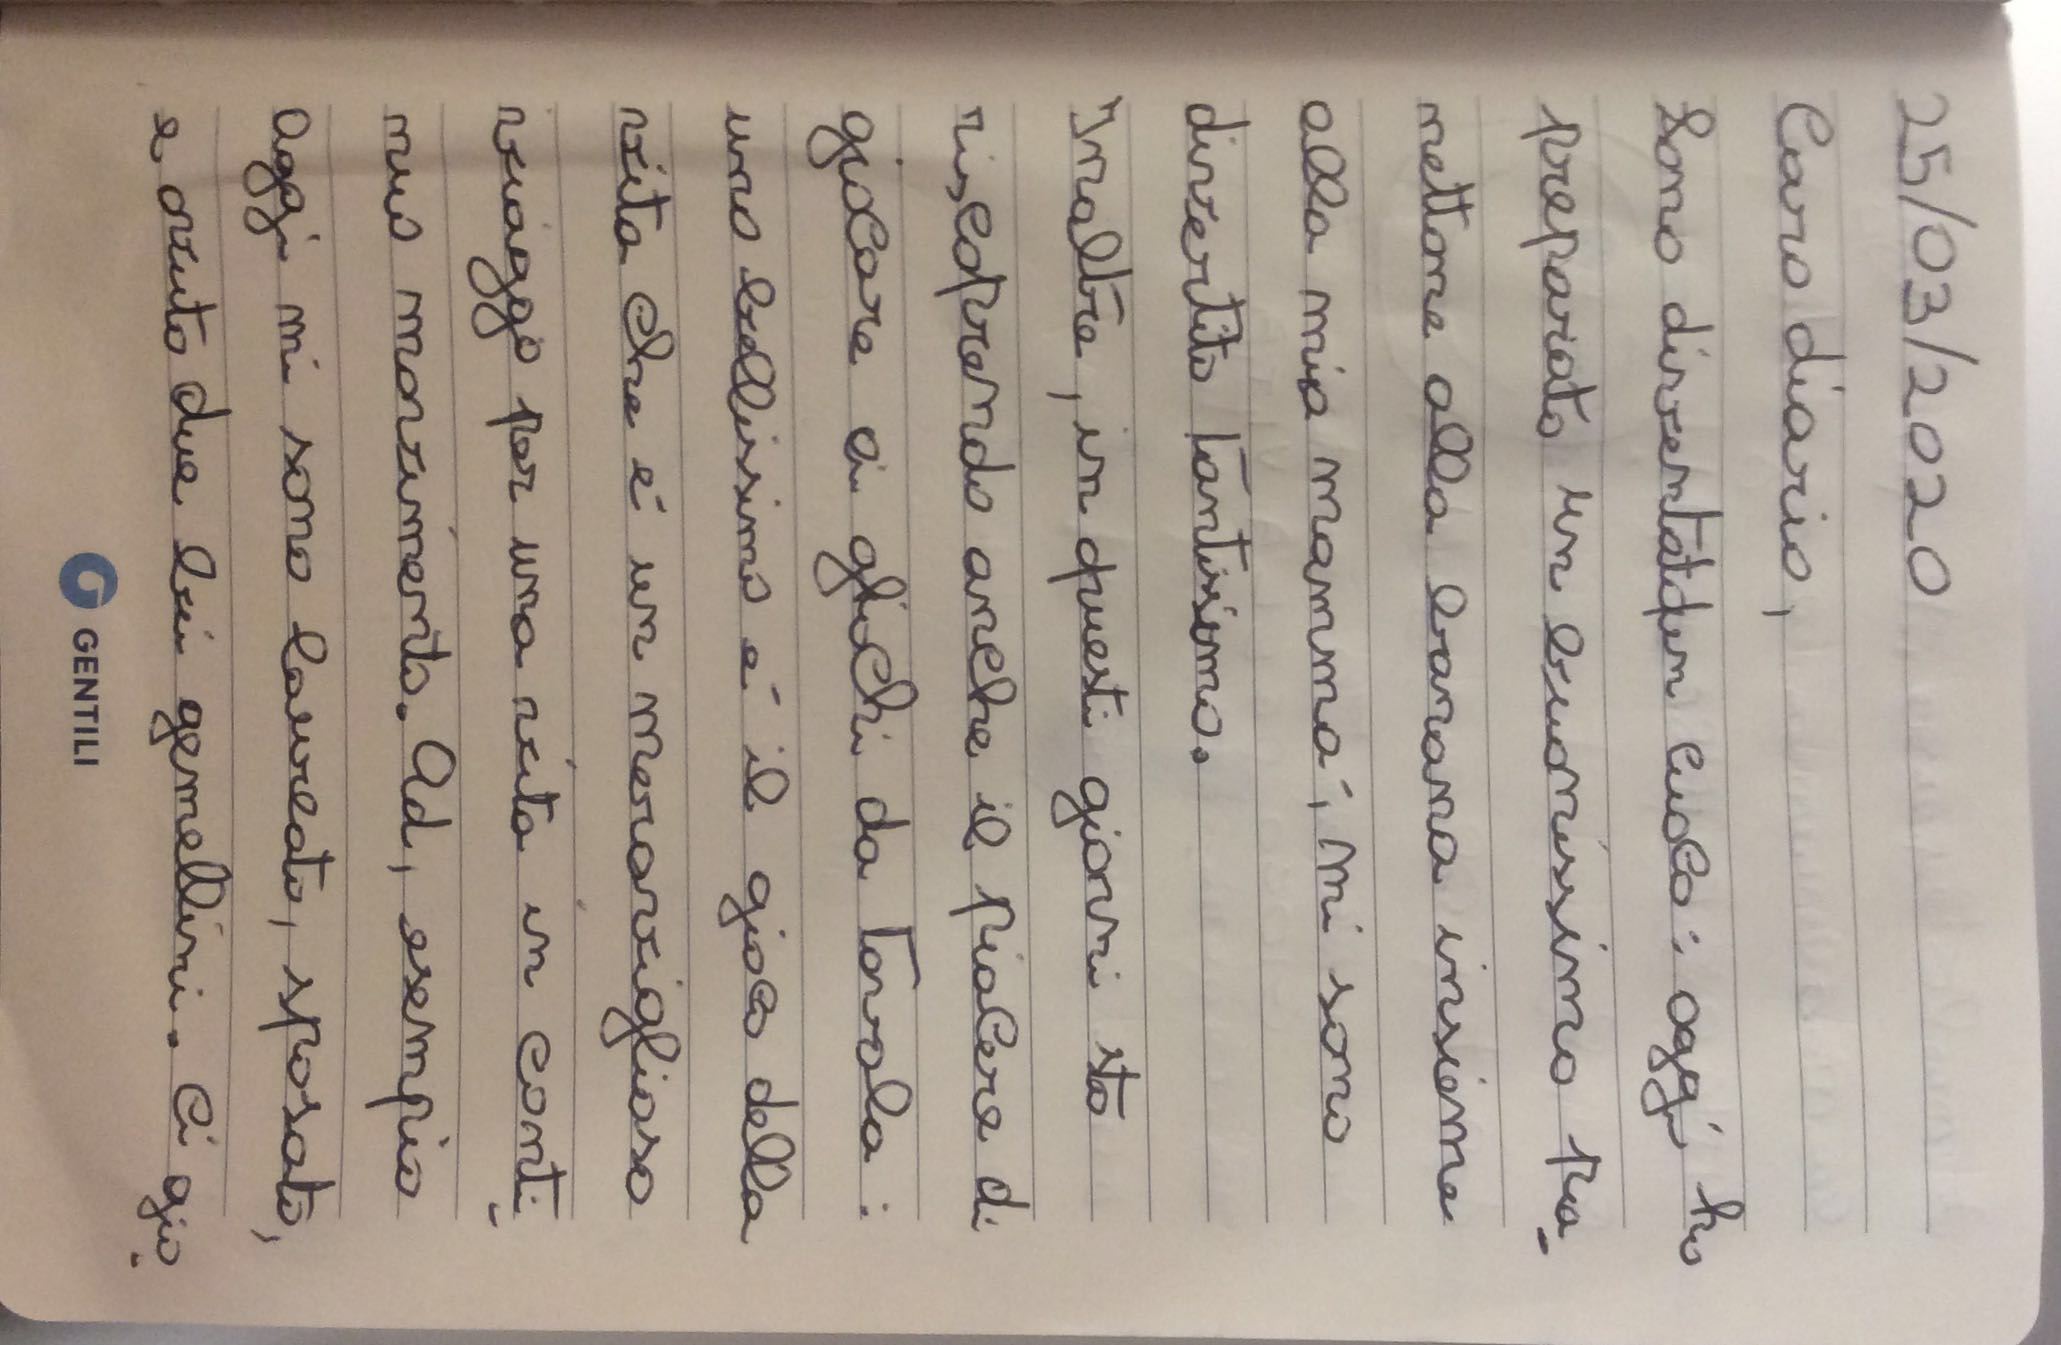 25/03/2020
Caro diario,
Sono diventato un cuoco: oggi ho
preparato un buonissimo pla-
mettone alla banana insieme
alla mia mamma, mi sono
divertito tantissimo.
Inoltre, in questi giorni sto
riscoprendo anche il piacere di
giocare ai giochi da tavola:
uno bellissimo é il gioco della
vita che é un meraviglioso
viaggo per una vita in conti-
nuo movimento. Ad, esempio
oggi mi sono laureato, sposato,
e avuto due bei gemellini. Ci gio-
GENTILI